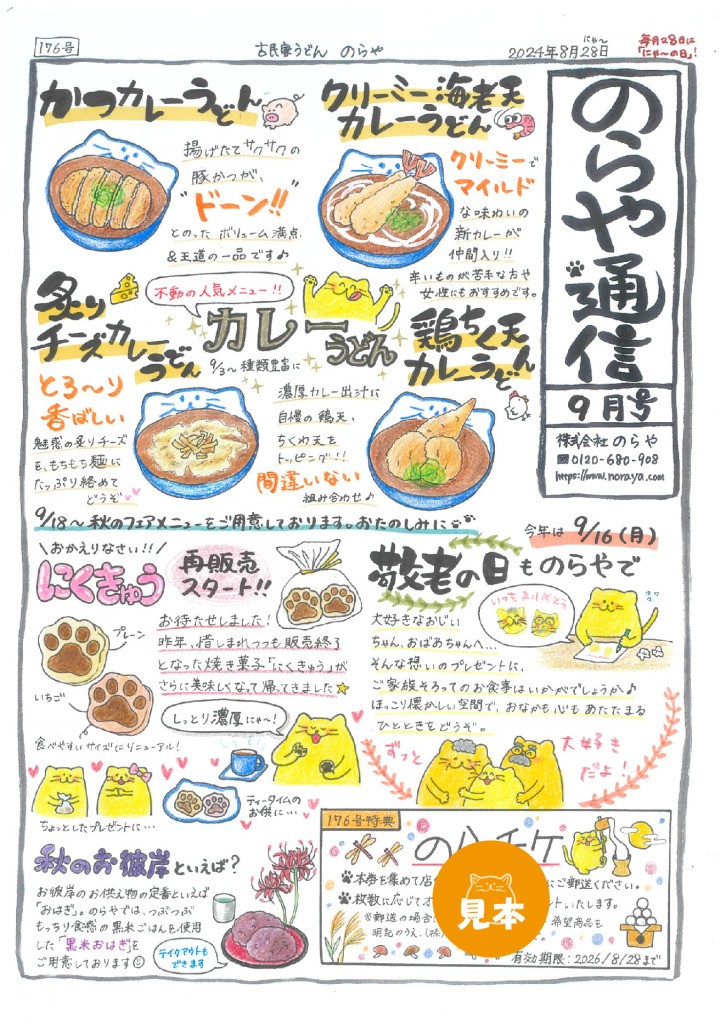 176号
古民家うどん のらや
にゃ〜
2024年8月28日
毎月28日に
「にゃ〜の日」!
のらや通信
9月号
株式会社 のらや
0120-680-908
https://www.noraya.com
かつカレーうどん
揚げたてサクサクの
豚かつが、
"ドーン!!"
とのった ボリューム満点
&王道の一品です♪
クリーミー海老天
カレーうどん
クリーミーで
マイルド
な味わいの
新カレーが
仲間入り!!
辛いものが苦手な方や
女性にもおすすめです。
不動の人気メニュー!!
カレーうどん
9/3〜種類豊富に
炙り
チーズカレー
うどん
とろ〜り
香ばしい
魅惑の炙りチーズ
を、もちもち麺に
たっぷり絡めて
どうぞ
鶏ちく天
カレーうどん
濃厚カレー出汁に
自慢の鶏天、
ちくわ天を
トッピング!!
間違いない
組み合わせ♪
9/18〜秋のフェアメニューをご用意しております。おたのしみに
\おかえりなさい!!/
にくきゅう
再販売
スタート!!
お待たせしました!
昨年、惜しまれつつも販売終了
となった焼き菓子「にくきゅう」が
さらに美味しくなって帰ってきました★
プレーン
いちご
食べやすいサイズにリニューアル!
しっとり濃厚にゃ〜!
ちょっとしたプレゼントに…
ティータイムの
お供に…
今年は 9/16(月)
敬老の日ものらやで
いつもありがとう
大好きなおじい
ちゃん、おばあちゃんへ…
そんな想いのプレゼントに、
ご家族そろってのお食事はいかがでしょうか♪
ほっこり懐かしい空間で、おなかも心もあたたまる
ひとときをどうぞ。
ずっと
大好き
だよ!
秋のお彼岸といえば?
お彼岸のお供え物の定番といえば
「おはぎ」。のらやでは、つぶつぶ
もっちり食感の黒米ごはんを使用
した「黒米おはぎ」を
ご用意しております☺
テイクアウトも
できます
176号特典
のらチケ
本券を集めて店
にご郵送ください。
枚数に応じてオ
ントいたします。
※郵送の場合
希望商品を
明記のうえ、(株)
見本
有効期限:2026/8/28まで